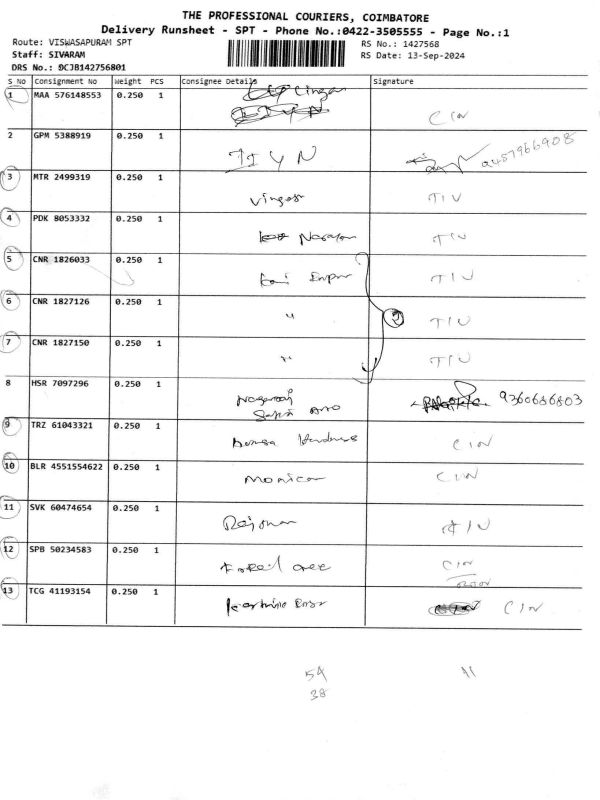 THE PROFESSIONAL COURIERS, COIMBATORE
Delivery Runsheet - SPT - Phone No.:0422-3505555 - Page No.:1
Route: VISWASAPURAM SPT RS No.: 1427568
Staff: SIVARAM RS Date: 13-Sep-2024
DRS No.: DCJB142756801
S No Consignment No Weight PCS Consignee Details Signature
1 MAA 576148553 0.250 1 CIN
2 GPM 5388919 0.250 1 IIYN 9457966908
3 MTR 2499319 0.250 1 TIV
4 PDK 8053332 0.250 1 TIV
5 CNR 1826033 0.250 1 TIV
6 CNR 1827126 0.250 1 " TIV
7 CNR 1827150 0.250 1 " TIV
8 HSR 7097296 0.250 1 9360686803
9 TRZ 61043321 0.250 1 CIN
10 BLR 4551554622 0.250 1 Monica CIN
11 SVK 60474654 0.250 1
12 SPB 50234583 0.250 1 CIN
13 TCG 41193154 0.250 1 CIN
54 11
38